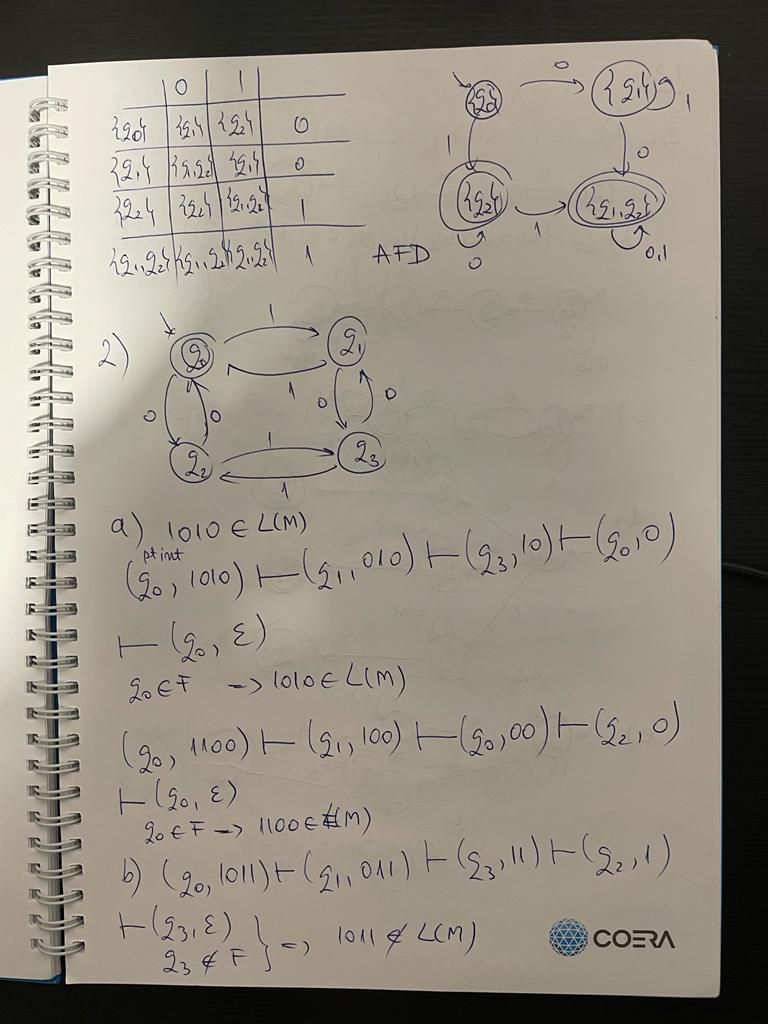 0 1
{q0} {q1} {q2} 0
{q1} {q1,q2} {q1} 0
{q2} {q2} {q1,q2} 1
{q1,q2} {q1,q2} {q1,q2} 1
{q0} 0 {q1} 1
1 0
{q2} 1 {q1,q2}
0 0,1
AFD
2)
q0 1 q1
1
0 0 0 0
q2 1 q3
1
a) 1010 ∈ L(M)
pt int
(q0, 1010) ⊢ (q1, 010) ⊢ (q3, 10) ⊢ (q0, 0)
⊢ (q0, ε)
q0 ∈ F -> 1010 ∈ L(M)
(q0, 1100) ⊢ (q1, 100) ⊢ (q0, 00) ⊢ (q2, 0)
⊢ (q0, ε)
q0 ∈ F -> 1100 ∈ L(M)
b) (q0, 1011) ⊢ (q1, 011) ⊢ (q3, 11) ⊢ (q2, 1)
⊢ (q3, ε)
q3 ∉ F } => 1011 ∉ L(M)
COERA